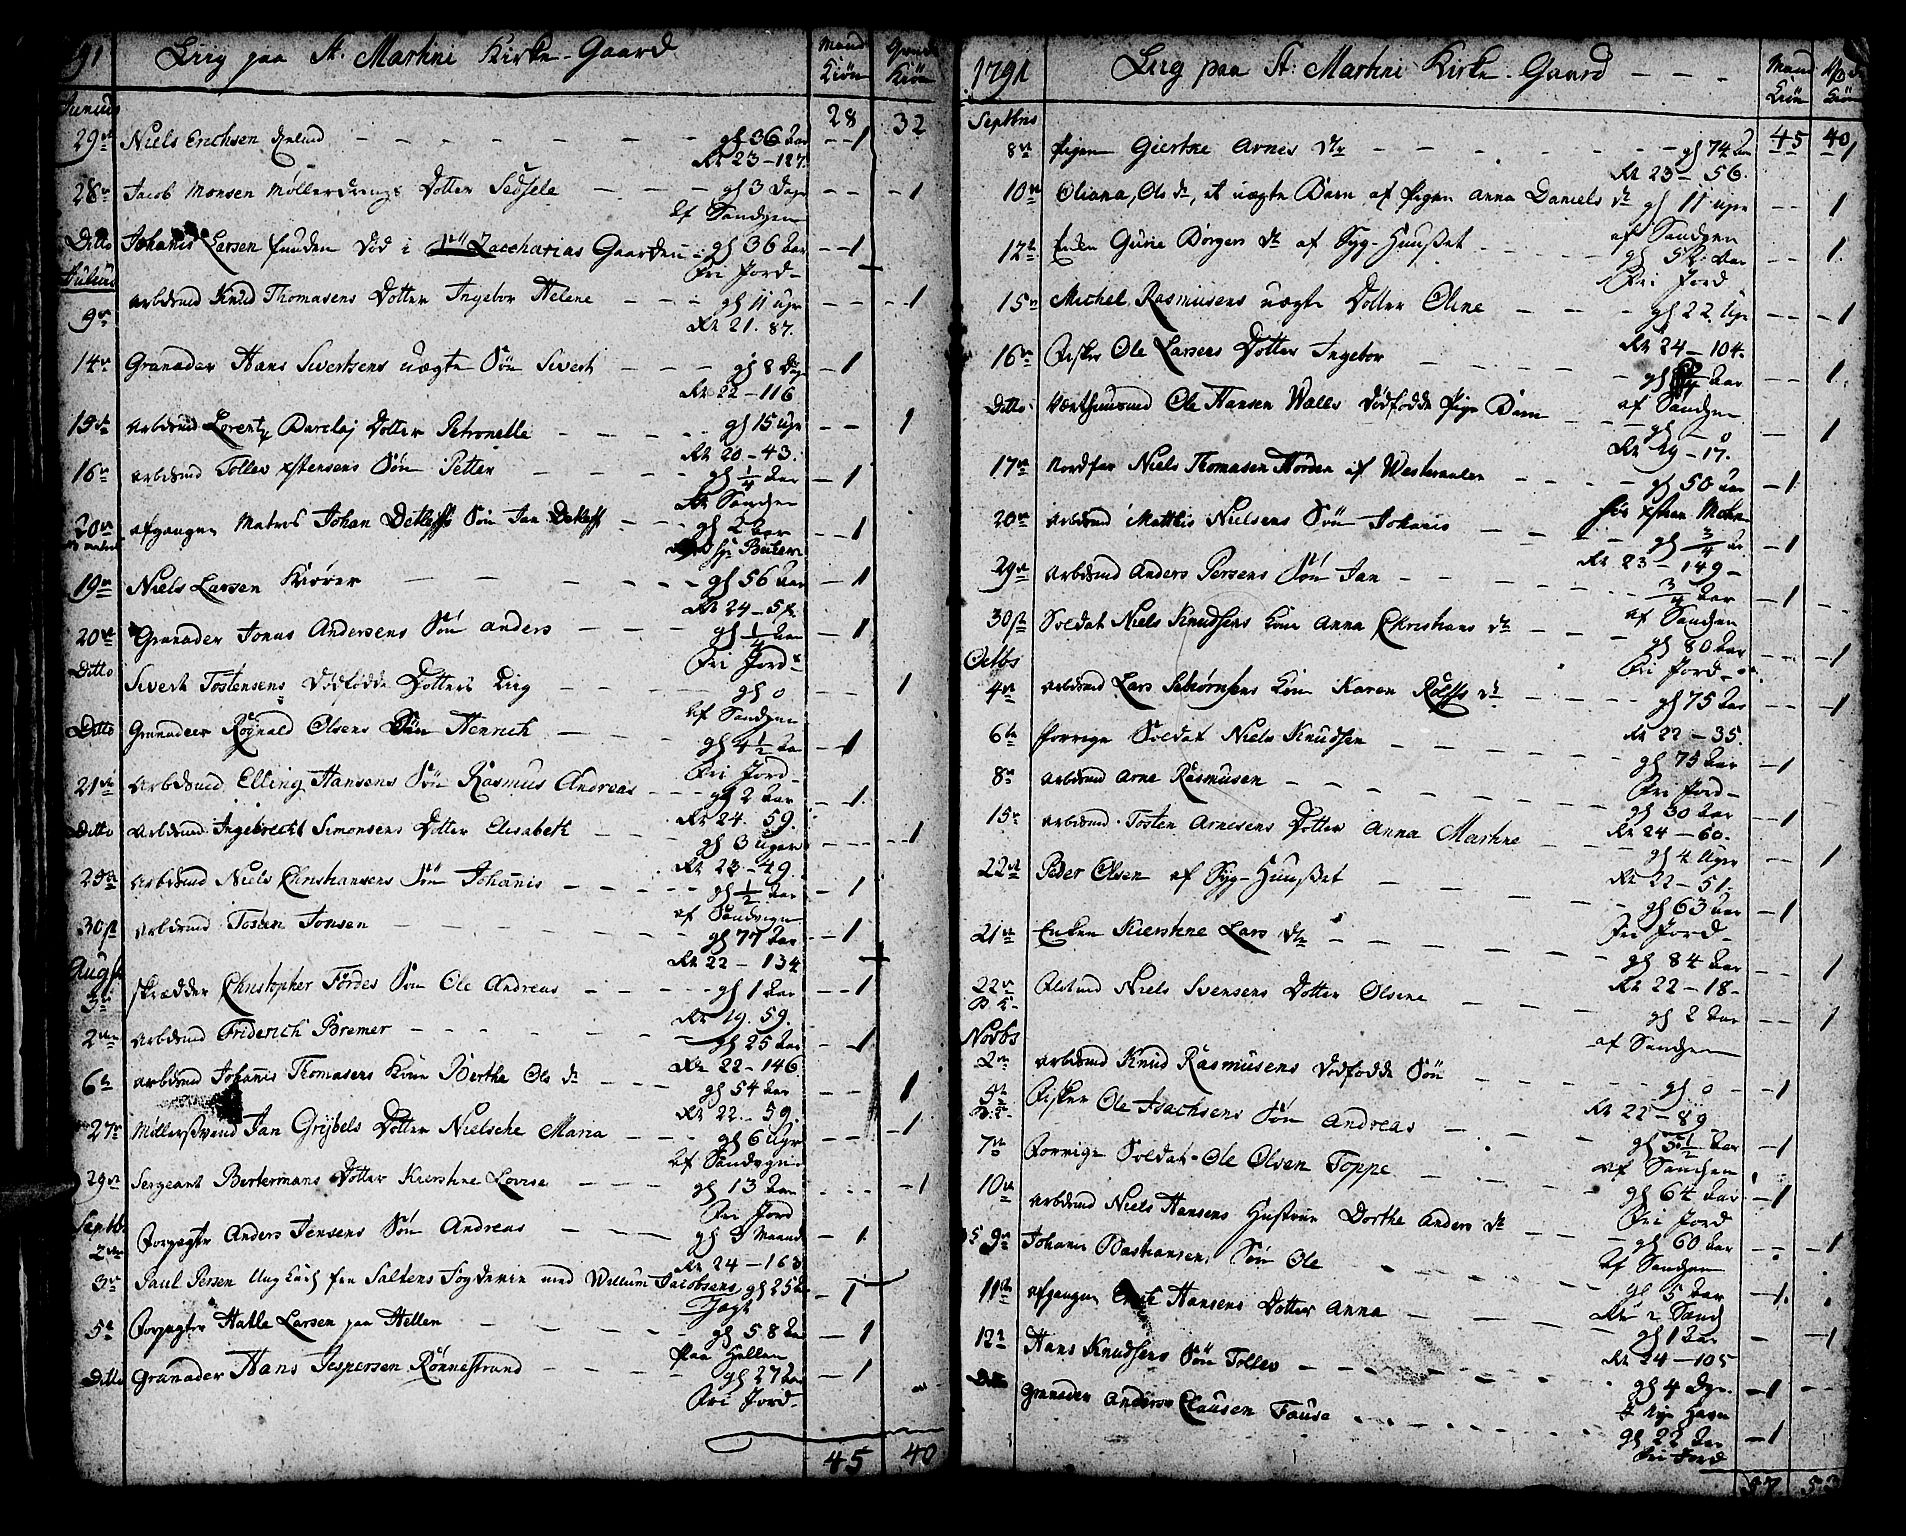 91 Liig paa St. Martini Kirke-Gaard Mand Kiön Qvinde Kiön
Junius 28 32
29de Niels Erichsen gl 36 Aar 1
No 23-127.
28de Jacob Monsen Møllerdrengs Dotter Sedsele gl 3 Dage 1
Af Sandvigen
Ditto Johanis Larsen funden Död i Zaccharias Gaarden gl 36 Aar 1
Fri Jord
Julius
9de Arbdsmd Knud Thomasens Dotter Ingebor Helene gl 11 uger 1
No 21. 87.
14de Granader Hans Sivertsens uægte Sön Sivert gl 8 Dage 1
No 22-116
15de Arbdsmd Lorentz Barclaj Dotter Petronelle gl 15 uger 1
No 20-43.
16de Arbdsmd Tollev Sön Petter gl 1/4 Aar 1
Af Sandvigen
20de afgangen Matros Johan Detlefs Sön Jan Detleff gl 2 Aar 1
19de Niels Larsen gl 56 Aar 1
No 24-52.
20de Granader Jonas Andersens Sön Anders gl 1/4 Aar 1
Fri Jord
Ditto Sivert Tostensens Dödfödde Dotters Liig gl 0 1
Af Sandvigen
Ditto Granadeer Rognald Olsens Sön Henrich gl 4 1/2 Aar 1
Fri Jord
21de Arbdsmd Elling Hansens Sön Rasmus Andreas gl 2 Aar 1
No 24. 59.
Ditto Arbdsmd Ingebrecht Simonsens Dotter Elisabeth gl 3 uger 1
No 22-49.
25de Arbdsmd Niels Christiansens Sön Johanis gl 1/2 Aar 1
af Sandvigen
30te Arbdsmd Tosten Jonsen gl 77 Aar 1
No 22-134
Augst
Skrædder Christopher Tördes Sön Ole Andreas gl 1 Aar 1
No 19. 59.
2den Arbdsmd Friderich Bremer gl 25 Aar 1
No 22-146
6te Arbdsmd Johanis Thomasens Kone Berthe Ols Dr gl 54 Aar 1
No 22. 59.
27de Møllersvend Jan Grijbels Dotter Nielsche Maria gl 6 Uger 1
Af Sandvigen
29de Sergeant Bertermans Dotter Kierstine Lovise gl 13 Aar 1
Fri Jord
Septbr
2den Forpagtr Anders Jensens Sön Andreas gl 3 Maand 1
No 24-163
3de Paul Persen Ung Karl fra Saltens Fogderie med Willum Jacobsens gl 25 Aar 1
Jagt
5te Forpagtr Halle Larsen paa Hellen gl 58 Aar 1
Paa Hellen
Ditto Granader Hans Jespersen Rönnestrand gl 27 Aar 1
Fri Jord
45 40
1791 Liig paa St. Martini Kirke-Gaard Mand Kiön Kiön
Septbris 45 40
8de Pigen Giertrue Arnes Dtr gl 74 Aar 1
No 23-56.
10de Oliana, Ols Dr, et uægte Barn af Pigen Anna Daniels Dr gl 11 uger 1
af Sandvigen
12te Enken Gurie Börges Dr af Syg-Huuset gl 52 Aar 1
Fri Jord
15de Michel Rasmusens uægte Dotter Oline gl 22 Uger 1
No 24-104.
16de Fisker Ole Larsens Dotter Ingebor gl Aar 1
af Sandvigen
Ditto Ole Hansen Walls Dödfödde Pige Barn gl 0 1
No 19-17.
17de Nordfar Niels Thomasen gl 50 Aar 1
20de Arbdsmd Matthis Nielsens Sön Johanis gl 3/4 Aar 1
No 23-149
29de Arbdsmd Anders Persens Sön Jan 3/4 Aar 1
af Sandvigen
30te Soldat Niels Knudsens Kone Anna Christians Dr gl 80 Aar 1
Fri Jord
Octbs
4de Arbdsmd Lars Kone Karen Rolfs Dr gl 75 Aar 1
No 22-35.
6te Forrige Soldat Niels Knudsen gl 75 Aar 1
Fri Jord
8de Arbdsmd Arne Rasmusen gl 30 Aar 1
No 24-60.
15de Arbdsmd Tosten Arnesens Dotter Anna Marthe gl 4 Uger 1
No 22-51.
22de Peder Olsen af Syg-Huuset gl 63 Aar 1
Fri Jord
21de Enken Kierstine Lars Dtr gl 84 Aar 1
No 22-18
22de Niels Svensens Dotter Olsine gl 2 Aar 1
af Sandvigen
Novbs
2den Arbdsmd Knud Rasmusens Dödfödde Sön gl 0 1
No 22-89
5te Fisker Ole Isachsens Sön Andreas gl 5 1/2 Aar 1
af Sandvigen
7de Forrige Soldat Ole Olsen Toppe gl 64 Aar 1
Fri Jord
10de Arbdsmd Niels Hansens Hustrue Dorthe Anders Dr gl 60 Aar 1
Af Sandvigen
9de Johanis Bastiansen Sön Ole gl 5 Aar 1
11te afgangen Hansens Dotter Anna gl 1 Aar 1
No 24-105
12te Hans Knudsens Sön Tollev gl 4 Dge 1
Ditto Granader Anders Clausen Fause gl 22 Aar 1
Fri Jord
57 53